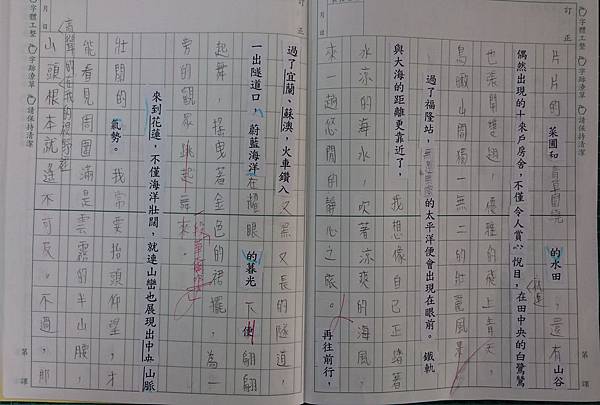 訂正
片片的菜圃和青草圍繞的水田，還有山谷
偶然出現的十來戶房舍，不僅令人賞心悅目，在田中央的白鷺鷥
也張開雙翅，優雅的飛上青天，
鳥瞰山間獨一無二的壯麗風景。
過了福隆站，無邊無際的太平洋便會出現在眼前。鐵軌
與大海的距離更靠近了，我想像自己正踏著
冰涼的海水，吹著涼爽的海風，
來一趟悠閒的靜心之旅。再往前行，
第 課
月 日
字體工整 字跡潦草 請保持清潔
訂正
過了宜蘭、蘇澳，火車鑽入又黑又長的隧道，
一出隧道口，蔚藍海洋在耀眼的暮光下便翩翩
起舞，搖曳著金色的裙擺，為一
旁的觀眾跳起舞來。
來到花蓮，不僅海洋壯闊，就連山巒也展現出中央山脈
壯闊的氣勢。我常要抬頭仰望，才
能看見周圍滿是雲霧的半山腰，
山頭根本就遙不可及。不過，那
第 課
月 日
字體工整 字跡潦草 請保持清潔